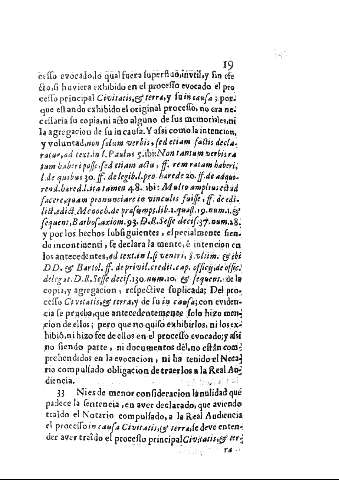 19
cesso evocado, lo qual fuera superfluo, invtil, y sin efe
cto, si huviera exhibido en el processo evocado el pro
cesso principal Civitatis, & terra, y su in causa; por-
que estando exhibido el original processo, no era ne-
cessaria su copia, ni acto alguno de sus memoriales, ni
la agregacion de su in causa. Y assi como la intencion,
y voluntad, non solum verbis, sed etiam factis decla-
ratur, ad text. in l. Paulus 5. ibi: Non tantum verbis ra
tum haberi posse, sed etiam actu, ff. rem ratam haberi,
l. de quibus 30. ff. de legib. l. pro hærede 20. ff. de adqui-
rend. hæred. l. ita tamen 48. ibi: Multo amplius est ad
facere, quam pronunciare in vinculis fuisse, ff. de edi-
lit. edict. Menoch. de præsumpt. lib. 1. quæst. 19. num. 1. &
sequent. Barbos. axiom. 93. D. R. Sesse decis. 37. num. 28.
y por los hechos subsiguientes, especialmente sien-
do incontinenti, se declara la mente, è intencion en
los antecedentes, ad text. in l. si ventri, §. vltim. & ibi
DD. & Bartol. ff. de privil. credit. cap. officij, de offic.
delegat. D. R. Sesse decis. 130. num. 10. & sequent. de la
copia, y agregacion, respective suplicada; Del pro-
cesso Civitatis, & terra, y de su in causa; con eviden-
cia se prueba, que antecedentemente solo hizo men-
cion de ellos; pero que no quiso exhibirlos, ni los ex-
hibió, ni hizo fee de ellos en el processo evocado; y assi
no siendo parte, ni documentos dèl, no están com-
prehendidos en la evocacion, ni ha tenido el Nota-
rio compulsado obligacion de traerlos a la Real Au-
diencia.
33 Ni es de menor consideracion la nulidad que
padece la sentencia, en aver declarado, que aviendo
traìdo el Notario compulsado, a la Real Audiencia
el processo in causa Civitatis, & terra, se deve enten-
der aver traìdo el processo principal Civitatis, & ter-
ra